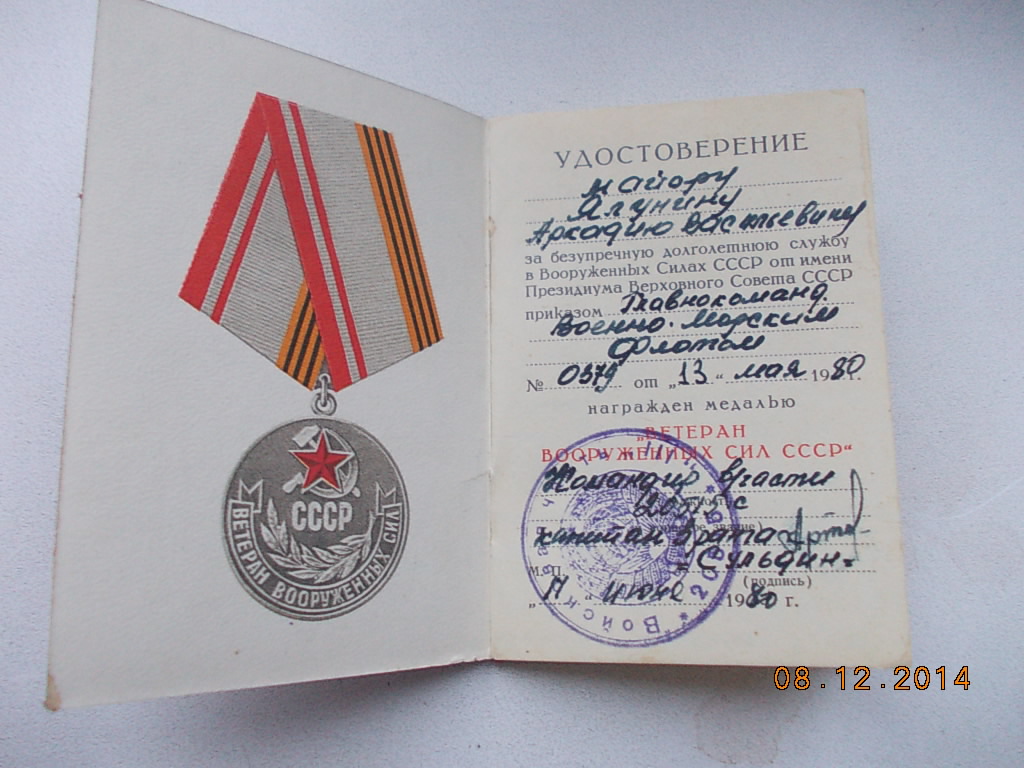 СССР
ВЕТЕРАН ВООРУЖЕННЫХ СИЛ
УДОСТОВЕРЕНИЕ
майору
Ялунину
Аркадию
за безупречную долголетнюю службу
в Вооруженных Силах СССР от имени
Президиума Верховного Совета СССР
приказом Главнокоманд.
Военно-Морским
Флотом
№ 0379 от „13“ мая 1980 г.
награжден медалью
„ВЕТЕРАН
ВООРУЖЕННЫХ СИЛ СССР“
Командир в/части
капитан
М.П. Сульдин
(подпись)
июня 1980 г.
08.12.2014